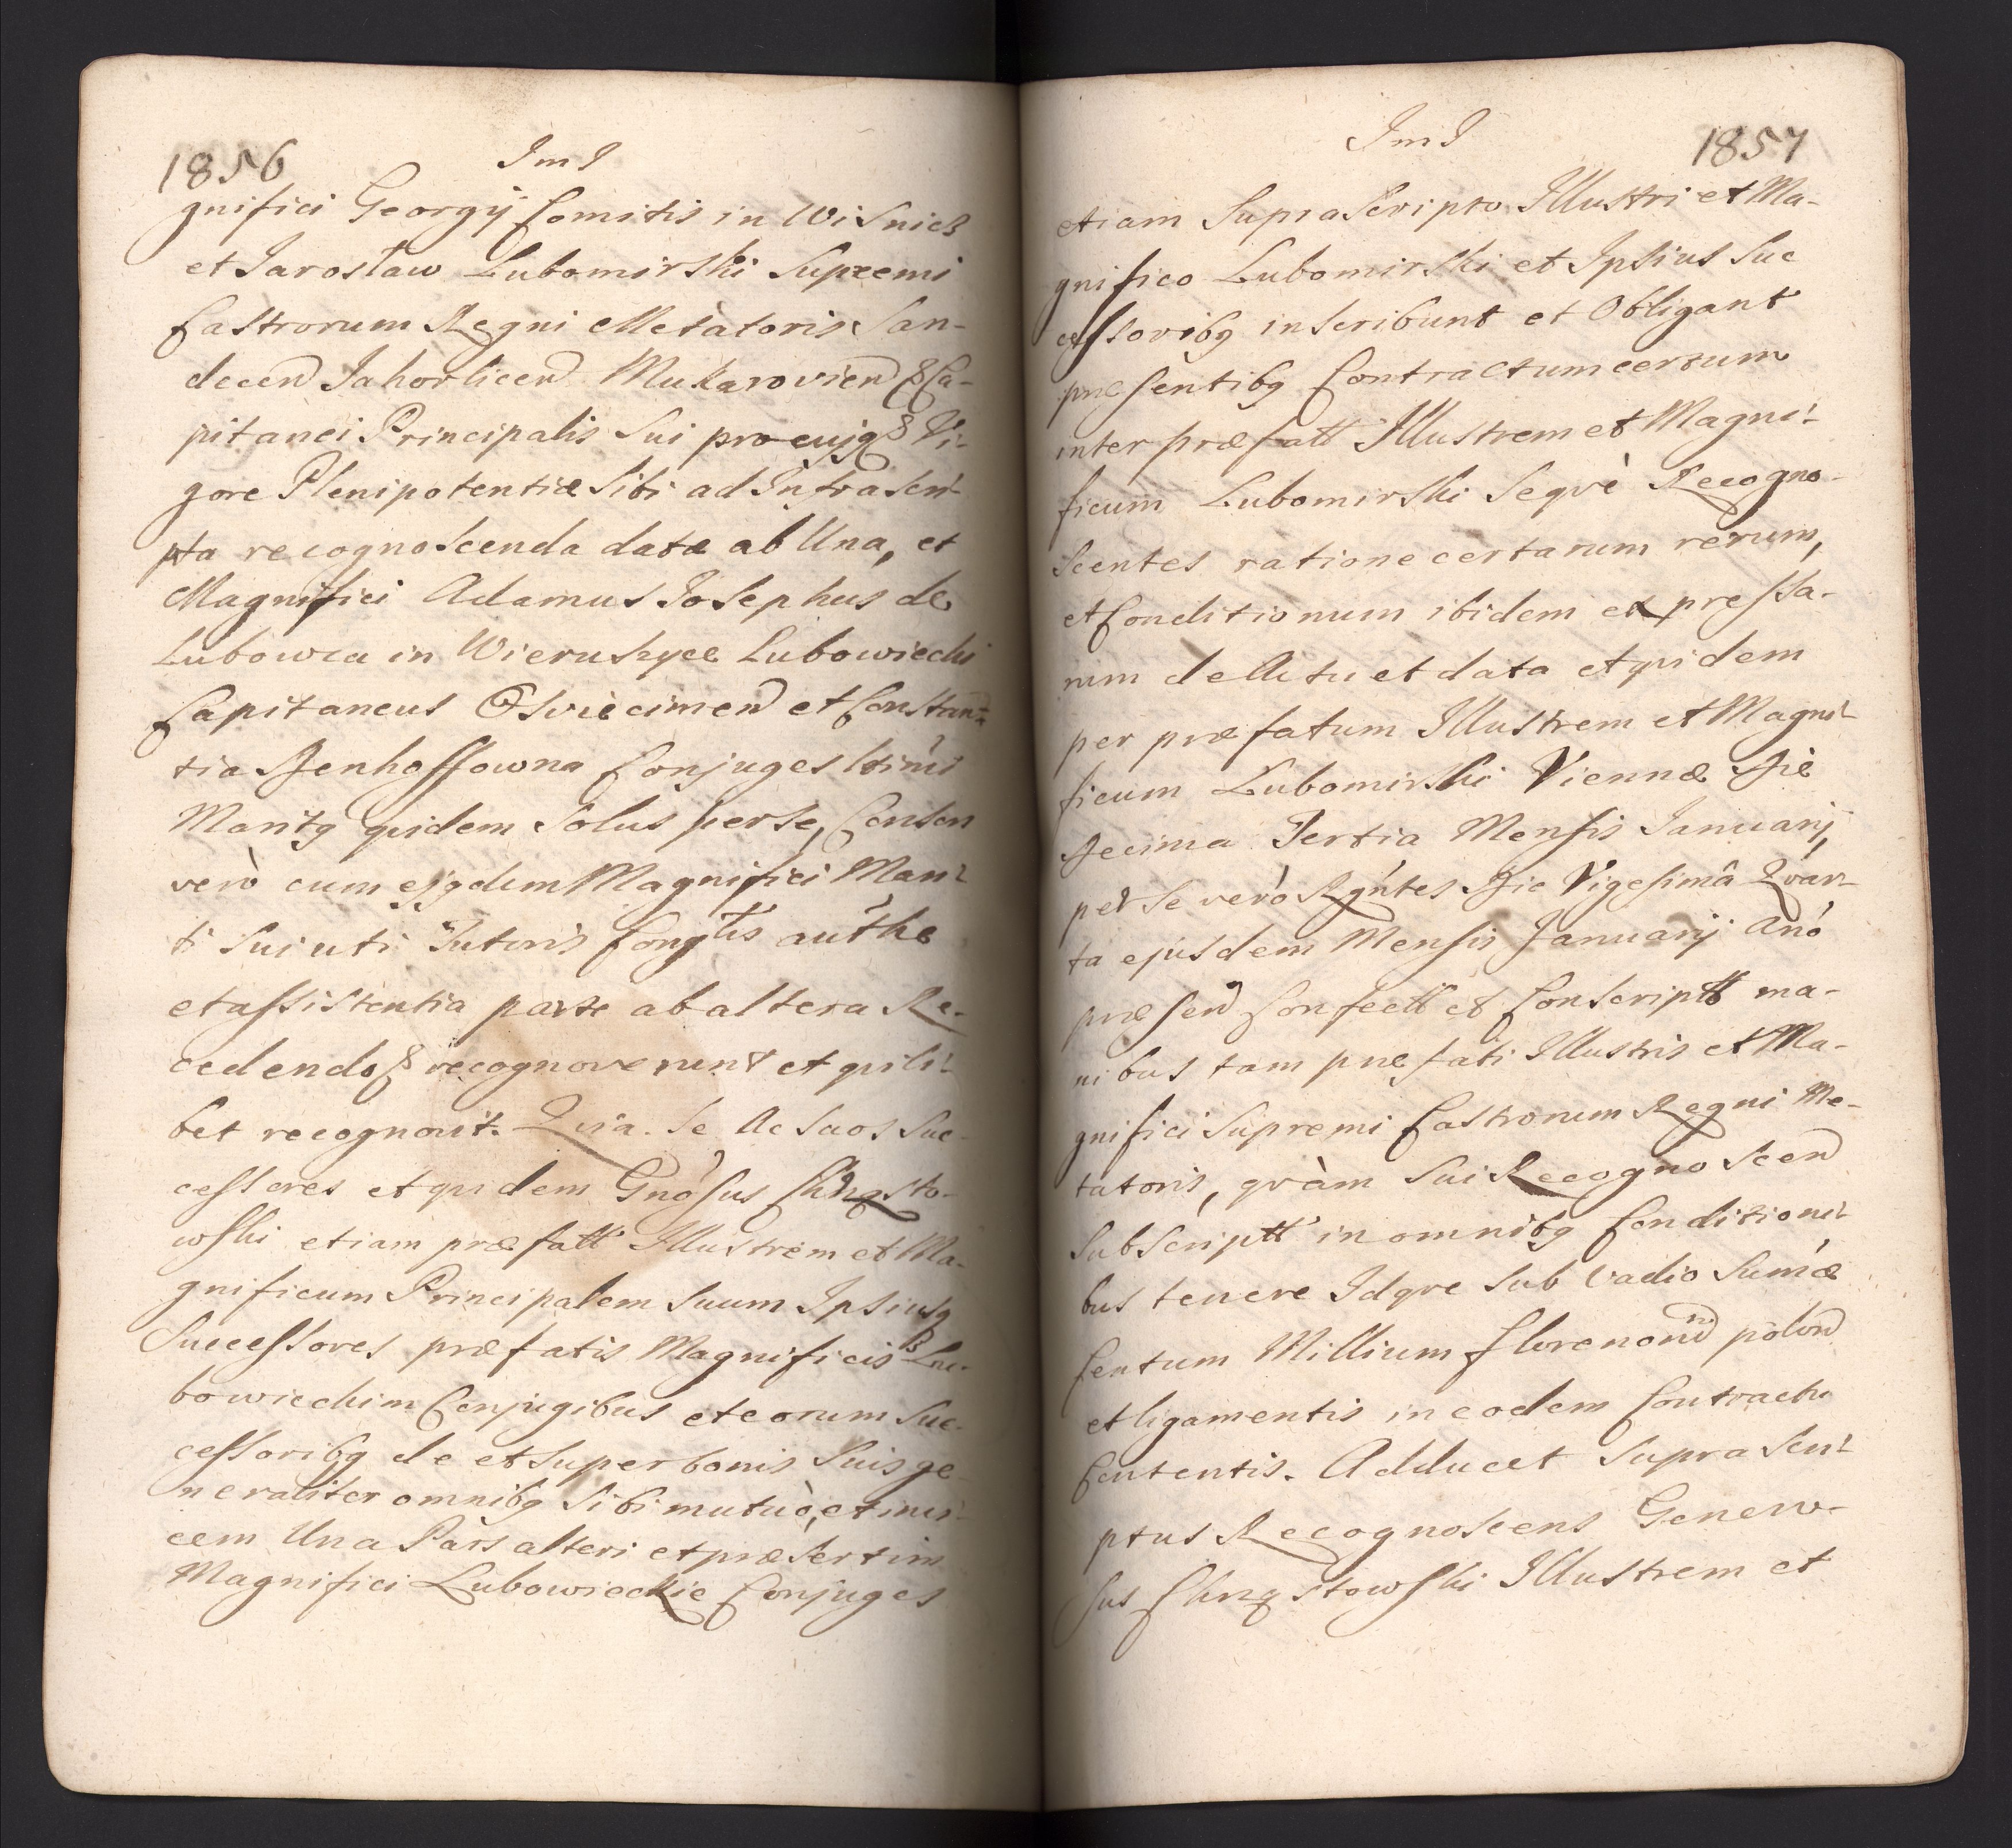 1856
ImI
gnifici Georgij Comitis in Wisnicz
et Jarosław Lubomirski Supremi
Castrorum Regni Metàtoris San-
decen Jahorlicen Mukarovien & Ca-
pitanei Principalis Sui pro cujq & Vi-
gore Plenipotentiæ Sibi ad Infrascri-
pta recognoscenda datæ ab Una, et
Magnifici Adamus Josephus de
Lubowca in Wieruszyce Lubowiecki
Capitaneus Osviècimen et Constan-
tia Denhoffowna Conjuges
Maritq quidem Solus per se,
verò cum ejqdem Magnifici Mari-
ti Sui uti Tutoris auth
et assistentia parte ab altera Re-
cedendo & recognoverunt et quili-
bet recognovit. Quia Se Ac Suos Suc-
cessores et quidem Gnosus Chrząsto-
wski etiam præfatt Illustrem et Ma-
gnificum Principalem Suum Ipsiusq
Successores præfatis Magnificis Lu-
bowieckim Conjugibus et eorum Suc-
cessoribq de et super bonis Suis ge-
neraliter omnibq Sibi mutuò, et invi-
cem Una Pars alteri et præsertim
Magnifici Lubowieckie Conjuges
ImI
1857
etiam SupraScripto Illustri et Ma-
gnifico Lubomirski et Ipsius Suc
cessoribq inscribunt et Obligant
præsentibq Contractum certum
inter præfatt Illustrem et Magni-
ficum Lubomirski Seqvè Recogno-
scentes ratione certarum rerum,
et Conditionum ibidem expressa-
rum de Actu et data et quidem
per præfatum Illustrem et Magni-
ficum Lubomirski Viennæ Die
Decima Tertia Mensis Januarij,
per Se verò Rgntes Die Vigesimâ Qvar-
ta ejusdem Mensis Januarij Anò
præsen Confectt et Conscriptt ma-
nibus tam præfati Illustris et Ma-
gnifici Supremi Castrorum Regni Me-
tatoris, qvàm Sui Recognoscen
Subscriptt in omnibq Conditioni-
bus tenere Idqve Sub Vadio Sumæ
Centum Millium florenor polon
et ligamentis in eodem Contractu
Contentis. Adducet Suprascri-
ptus Recognoscens Genero-
sus Chrząstowski Illustrem et